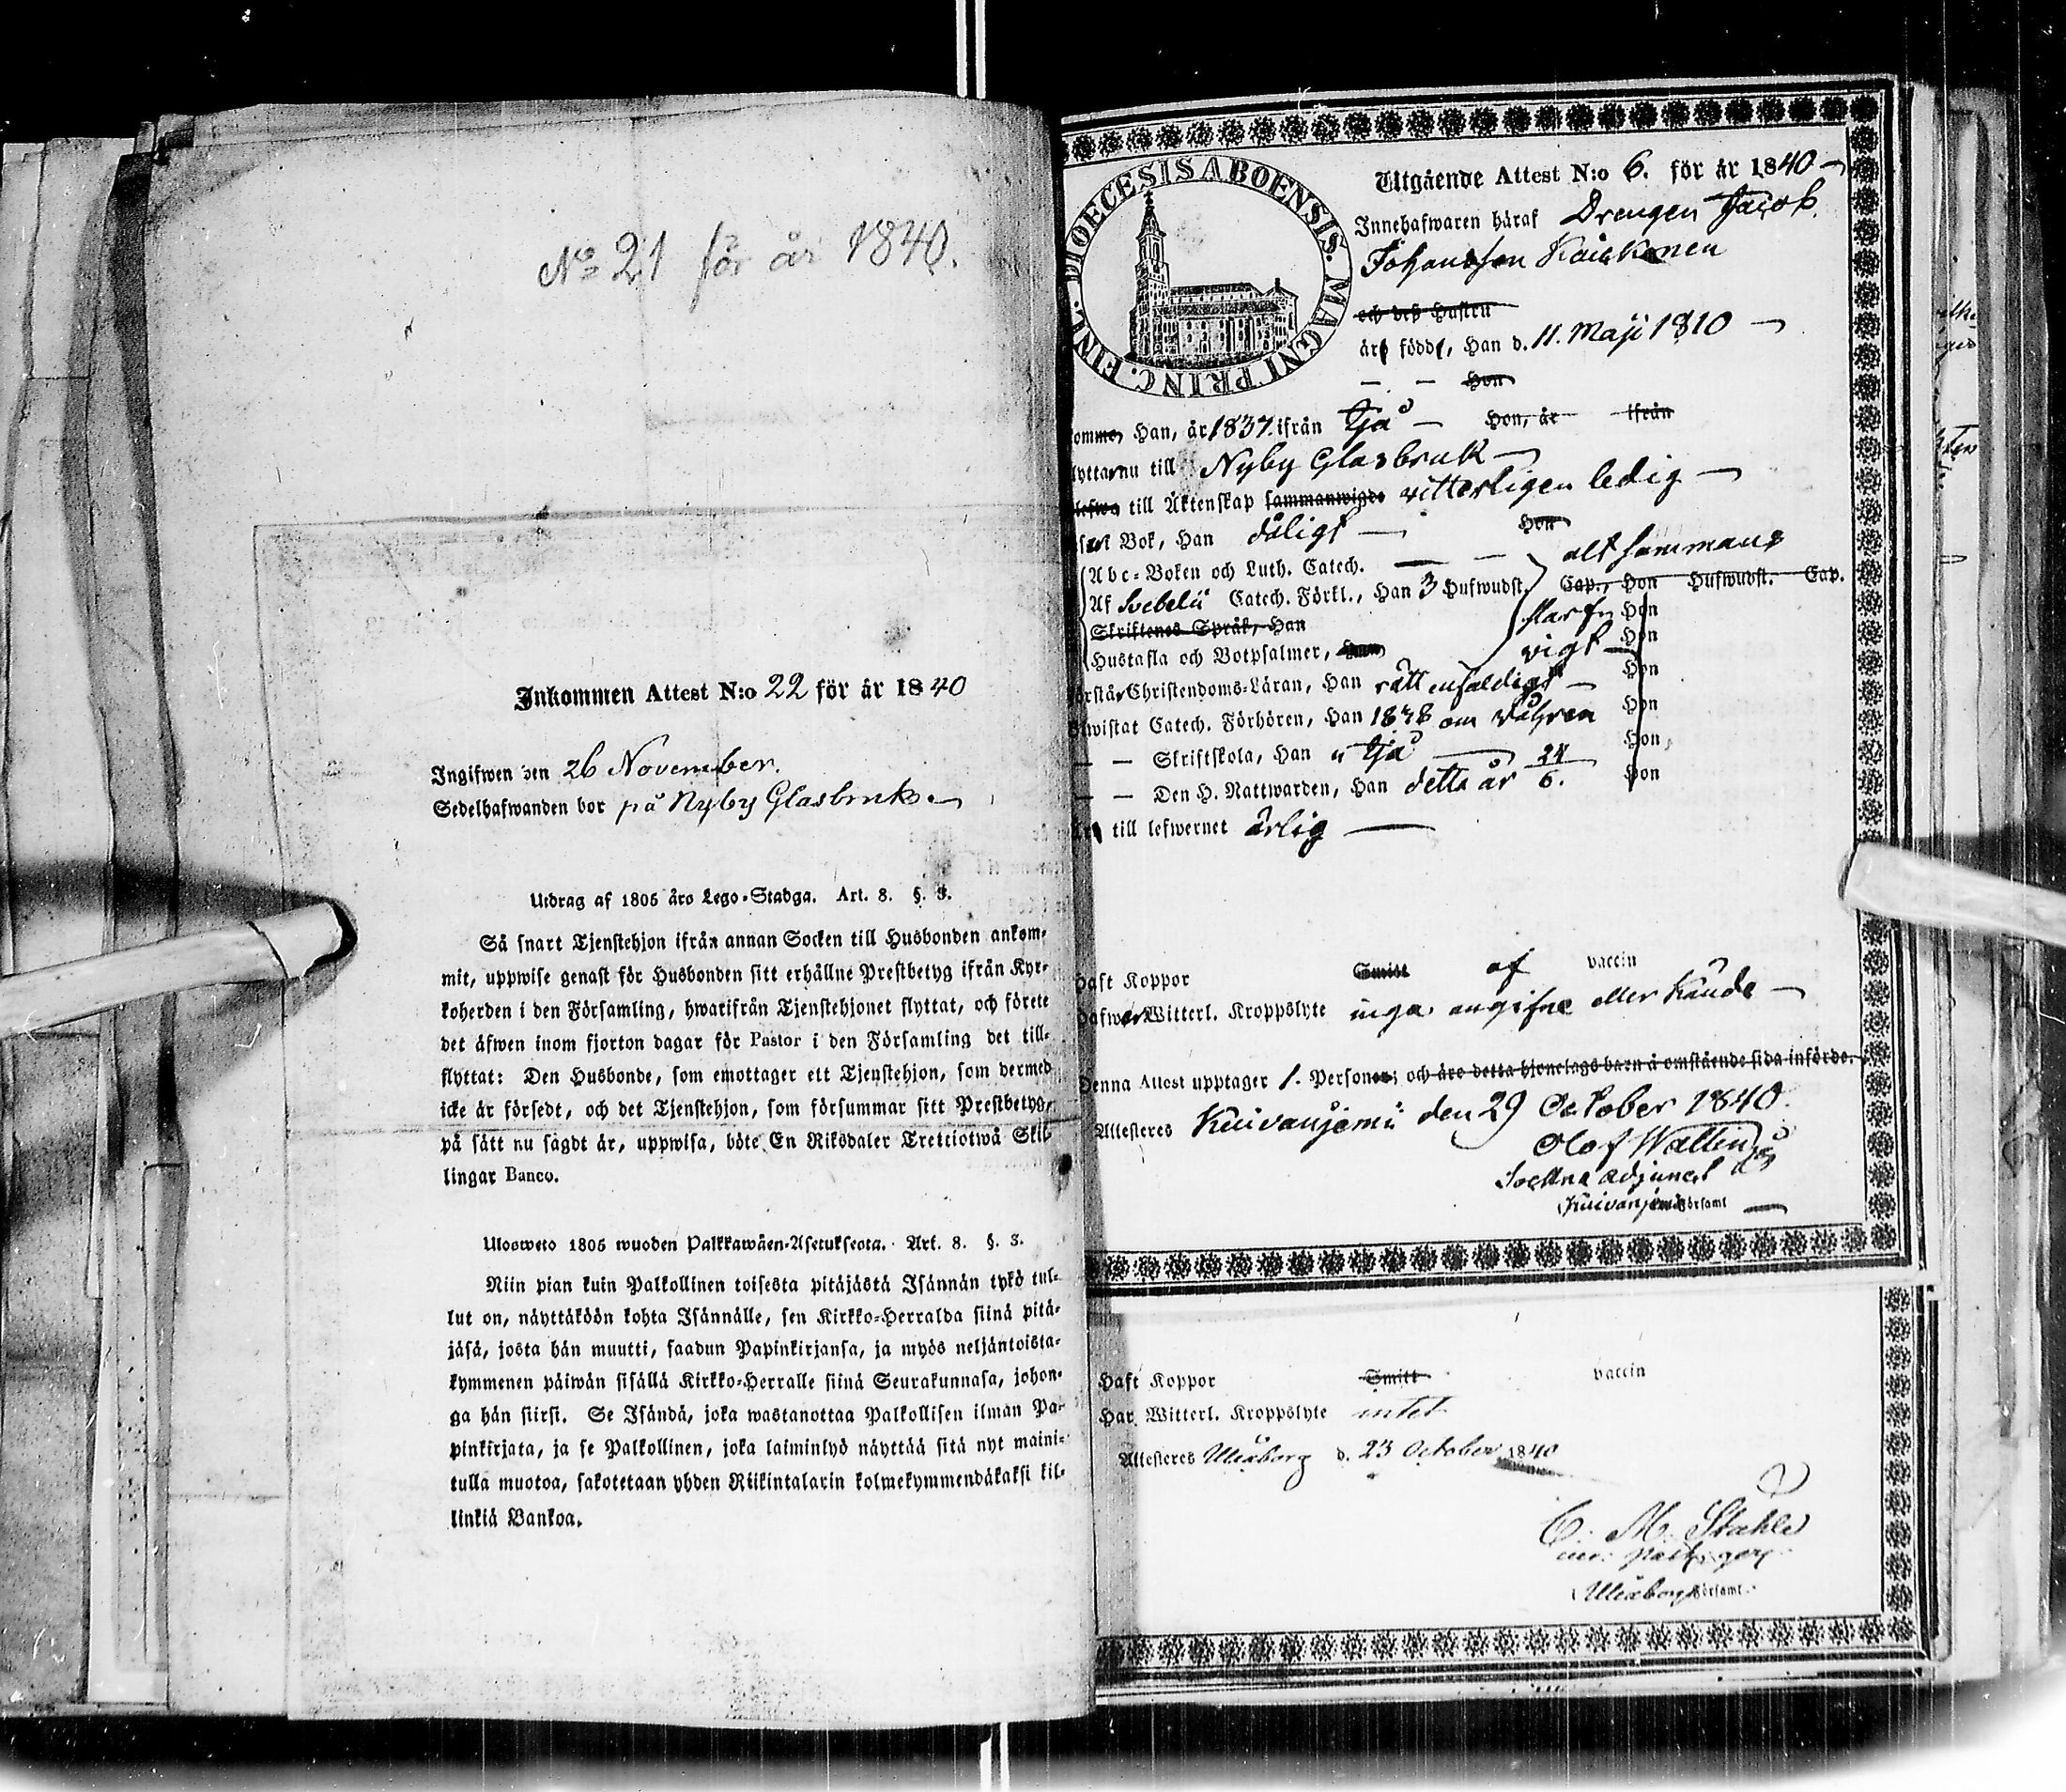 No 21 för år 1840.
Inkommen Attest N:o 22 för år 1840
Ingifwen den 26 November.
Sedelhafwanden bor på Nyby Glasbruk
Utdrag af 1805 års Lego-Stadga. Art. 8. §. 3.
Så snart Tjenstehjon ifrån annan Socken till Husbonden ankom-
mit, uppwise genast för Husbonden sitt erhållne Prestbetyg ifrån Kyr-
koherden i den Församling, hwarifrån Tjenstehjonet flyttat, och förete
det äfwen inom fjorton dagar för Pastor i den Församling det till-
flyttat: Den Husbonde, som emottager ett Tjenstehjon, som dermed
icke är försedt, och det Tjenstehjon, som försummar sitt Prestbetyg,
på sätt nu sagdt är, uppwisa, böte En Riksdaler Trettiotwå Skil-
lingar Banco.
Ulosweto 1805 wuoden Palkkawäen-Asetuksesta. Art. 8. §. 3.
Niin pian kuin Palkollinen toisesta pitäjästä Isännän tykö tul-
lut on, näyttäköön kohta Isännälle, sen Kirkko-Herralda siinä pitä-
jäsä, josta hän muutti, saadun Papinkirjansa, ja myös neljäntoista-
kymmenen päiwän sisällä Kirkko-Herralle siinä Seurakunnasa, johon-
ga hän siirsi. Se Isändä, joka wastanottaa Palkollisen ilman Pa-
pinkirjata, ja se Palkollinen, joka laiminlyö näyttää sitä nyt maini-
tulla muotoa, sakotetaan yhden Riikintalarin kolmekymmendäkaksi kil-
linkiä Bankoa.
DIOECESIS ABOENSIS. MAGNI PRINC. FINL.
Utgående Attest N:o 6. för år 1840
Innehafwaren häraf Drengen Jacob
Johansson
och deß Hustru
är född, Han d. 11. Maji 1810
Hon
Han, år 1837. ifrån Ijå Hon, år ifrån
nu till Nyby Glasbruk
till Äktenskap sammanwigde vitterligen ledig
Bok, Han dåligt Hon
Abc-Boken och Luth. Catech. alt sammans
Af Svebelii Catech. Förkl., Han 3 Hufwudst. Cap., Hon Hufwudst. Cap.
Skriftenes Språk, Han Hon
Hustafla och Botpsalmer, Han vigt Hon
Christendoms-Läran, Han rätt enfaldigt Hon
Catech. Förhören, Han 1838 om våhren Hon
— — Skriftskola, Han Ijå Hon,
— — Den H. Nattwarden, Han detta år 24/6. Hon
till lefwernet ärlig
Haft Koppor Smitt af vaccin
Witterl. Kroppslyte inga angifne eller kände
Denna Attest upptager 1. Personer; och äro detta hjonelags barn å omstående sida införde.
Attesteres Kuivaniemi den 29 October 1840.
Olof Wallin
Sockne adjunct
Kuivaniemi Församl
Haft Koppor Smitt vaccin
Har Witterl. Kroppslyte intet
Attesteres Uleåborg d. 23 October 1840
C. M. Stahle
Uleåborgs Församl.